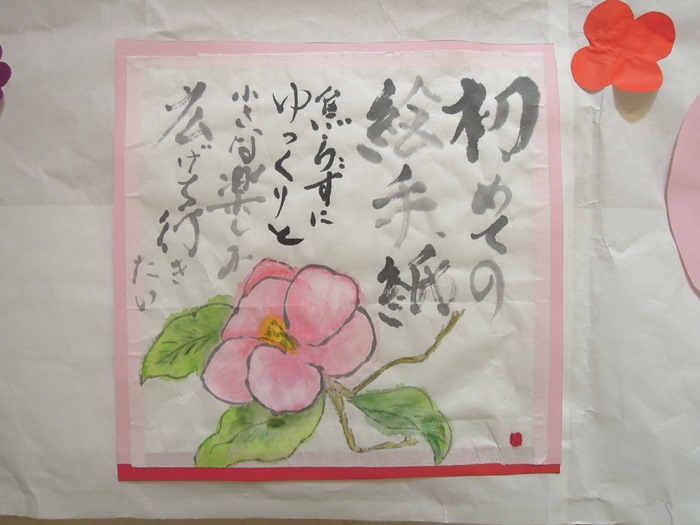 初めての
絵手紙
焦らずに
ゆっくりと
小さな楽しみ
広げて行き
たい